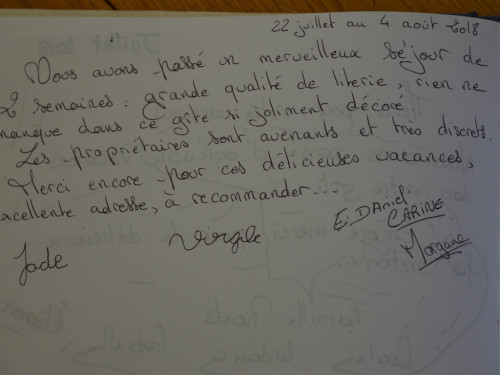 22 juillet au 4 août 2018.
Nous avons passé un merveilleux séjour de
2 semaines : grande qualité de literie, rien ne
manque dans ce gîte si joliment décoré.
Les propriétaires sont avenants et très discrets.
Merci encore pour ces délicieuses vacances,
excellente adresse, à recommander...
E. DANIEL
CARINE
Jade Virgile Morgane